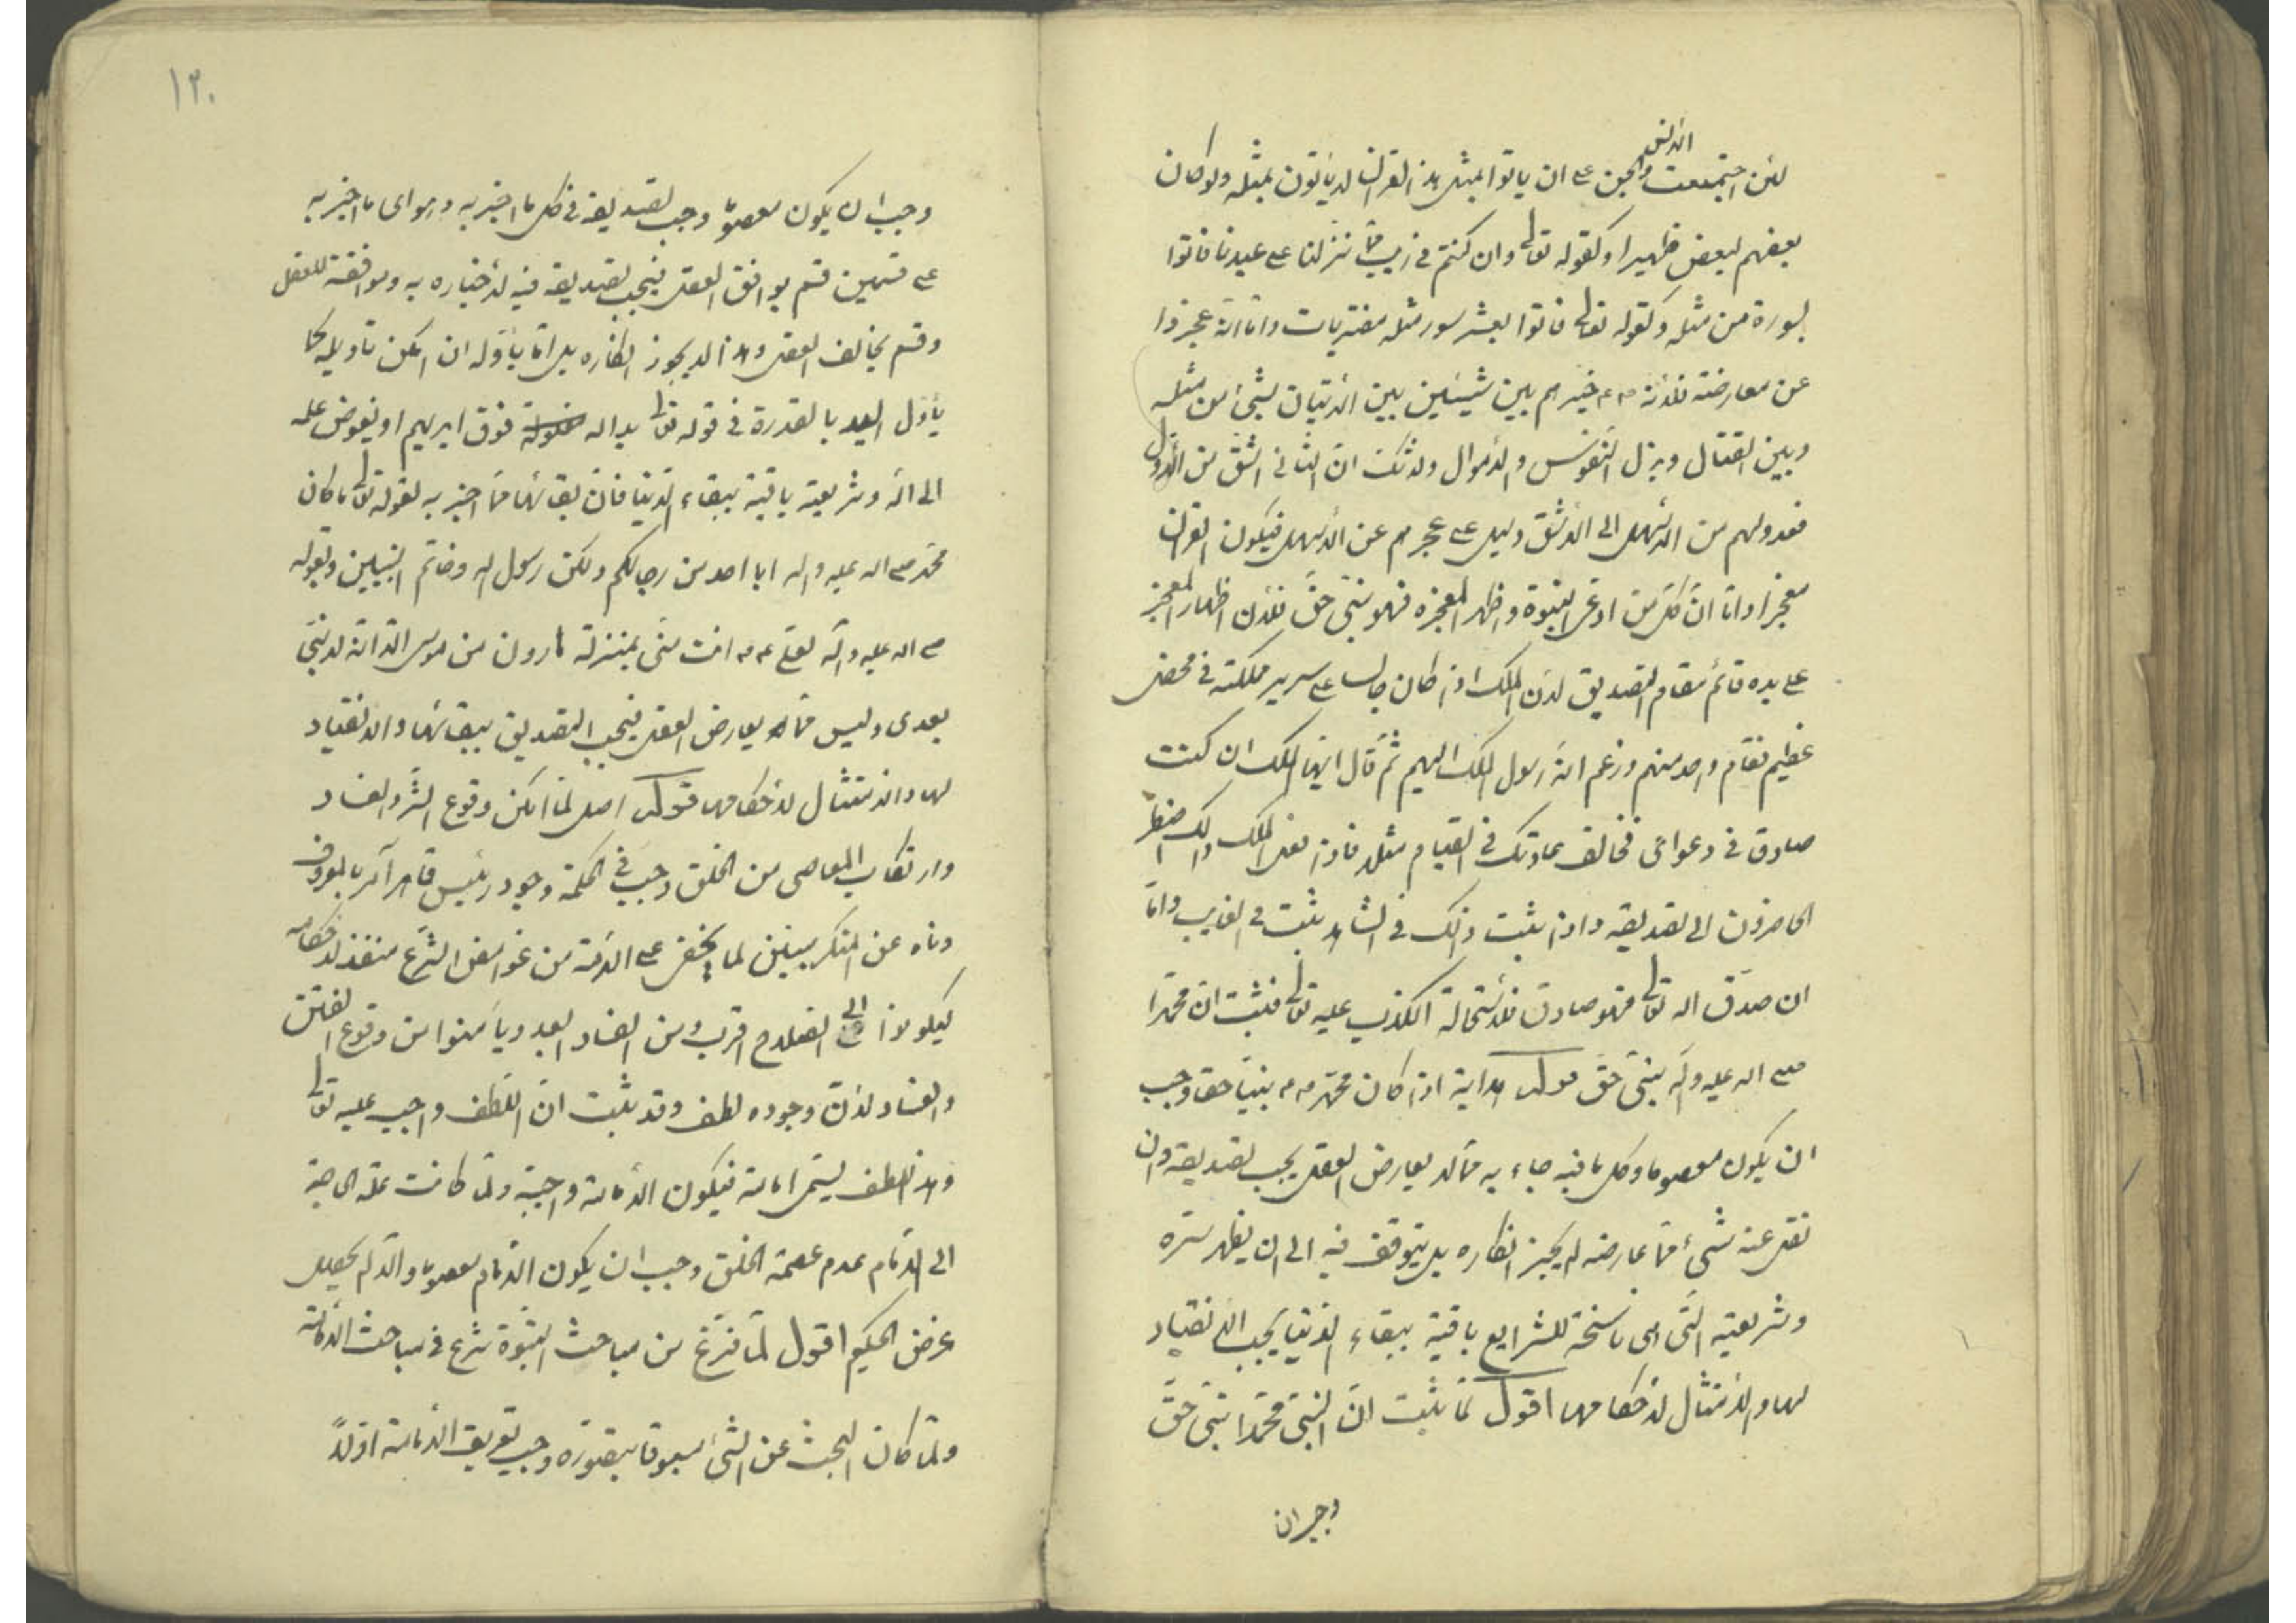 لئن اجتمعت الانس والجن على ان ياتوا بمثل هذا القران لا يأتون بمثله ولو كان
بعضهم لبعض ظهيرا وكقوله تعالى وان كنتم فى ريب مما نزلنا على عبدنا فاتوا
بسورة من مثله وكقوله تعالى فاتوا بعشر سور مثله مفتريات واما انه عجزوا
عن معارضته فلانه خيرهم بين شيئين بين الاتيان بشئ من مثله
وبين القتال وبذل النفوس والاموال ولا شك ان الثانى اشق من الاول
فعدولهم من الاسهل الى الاشق دليل على عجزهم عن الاسهل فيكون القران
معجزا واما ان كل من ادعى النبوة واظهر المعجزة فهو نبى حق فلان اظهار المعجز
على يده قائم مقام التصديق لان الملك اذا كان جالسا على سرير مملكته فى محضر
عظيم فقام واحد منهم وزعم انه رسول الملك اليهم ثم قال ايها الملك ان كنت
صادقا فى دعواى فخالف عادتك فى القيام مثلا فاذا فعل الملك ذلك اضطر
الحاضرون الى تصديقه واذا ثبت ذلك فى الشاهد ثبت فى الغايب واما
ان صدق الله تعالى فهو صادق فلاستحالة الكذب عليه تعالى فثبت ان محمدا
صلى الله عليه وآله نبى حق قوله هداية اذا كان محمد نبيا حقا وجب
ان يكون معصوما وكل ما فيه جاء به مما لا يعارض العقل يجب تصديقه وان
نقل عنه شئ مما عارضه لم يجز انكاره بل يتوقف فيه الى ان يظهر سره
وشريعته التى هى ناسخة للشرايع باقية ببقاء الدنيا يجب الانقياد
لها والامتثال لاحكامها اقول لما ثبت ان النبى محمدا نبى حق
وجب ان
١٢٠
وجب ان يكون معصوما وجب تصديقه فى كل ما اخبر به وهو اى ما اخبر به
على قسمين قسم يوافق العقل فيجب تصديقه فيه لاخباره به وموافقة للعقل
وقسم يخالف العقل وهذا لا يجوز انكاره بل اما يأوله ان امكن تأويله كما
يأول اليد بالقدرة فى قوله تعالى يد الله فوق ايديهم او يفوض علمه
الى الله وشريعته باقية ببقاء الدنيا فان بقائها مما اخبر به لقوله تعالى ما كان
محمد صلى الله عليه واله ابا احد من رجالكم ولكن رسول الله وخاتم النبيين ولقوله
صلى الله عليه وآله لعلى انت منى بمنزلة هارون من موسى الا انه لا نبى
بعدى وليس مما يعارض العقل فيجب التصديق ببقائها والانقياد
لها والامتثال لاحكامها قوله اصل لما امكن وقوع الشر والفساد
وارتكاب المعاصى من الخلق وجب فى الحكمة وجود رئيس قاهر آمر بالمعروف
وناه عن المنكر مبين لما يخفى على الامة من غوامض الشرع منفذ لاحكامه
ليكونوا الى الصلاح اقرب ومن الفساد ابعد ويأمنوا من وقوع الفتن
والفساد لان وجوده لطف وقد ثبت ان اللطف واجب عليه تعالى
وهذا اللطف يسمى امامة فيكون الامامة واجبة ولما كانت علة الحاجة
الى الامام عدم عصمة الخلق وجب ان يكون الامام معصوما والا لم يحصل
غرض الحكيم اقول لما فرغ من مباحث النبوة شرع فى مباحث الامامة
ولما كان البحث عن الشئ مسبوقا بتصوره وجب تعريف الامامة اولا